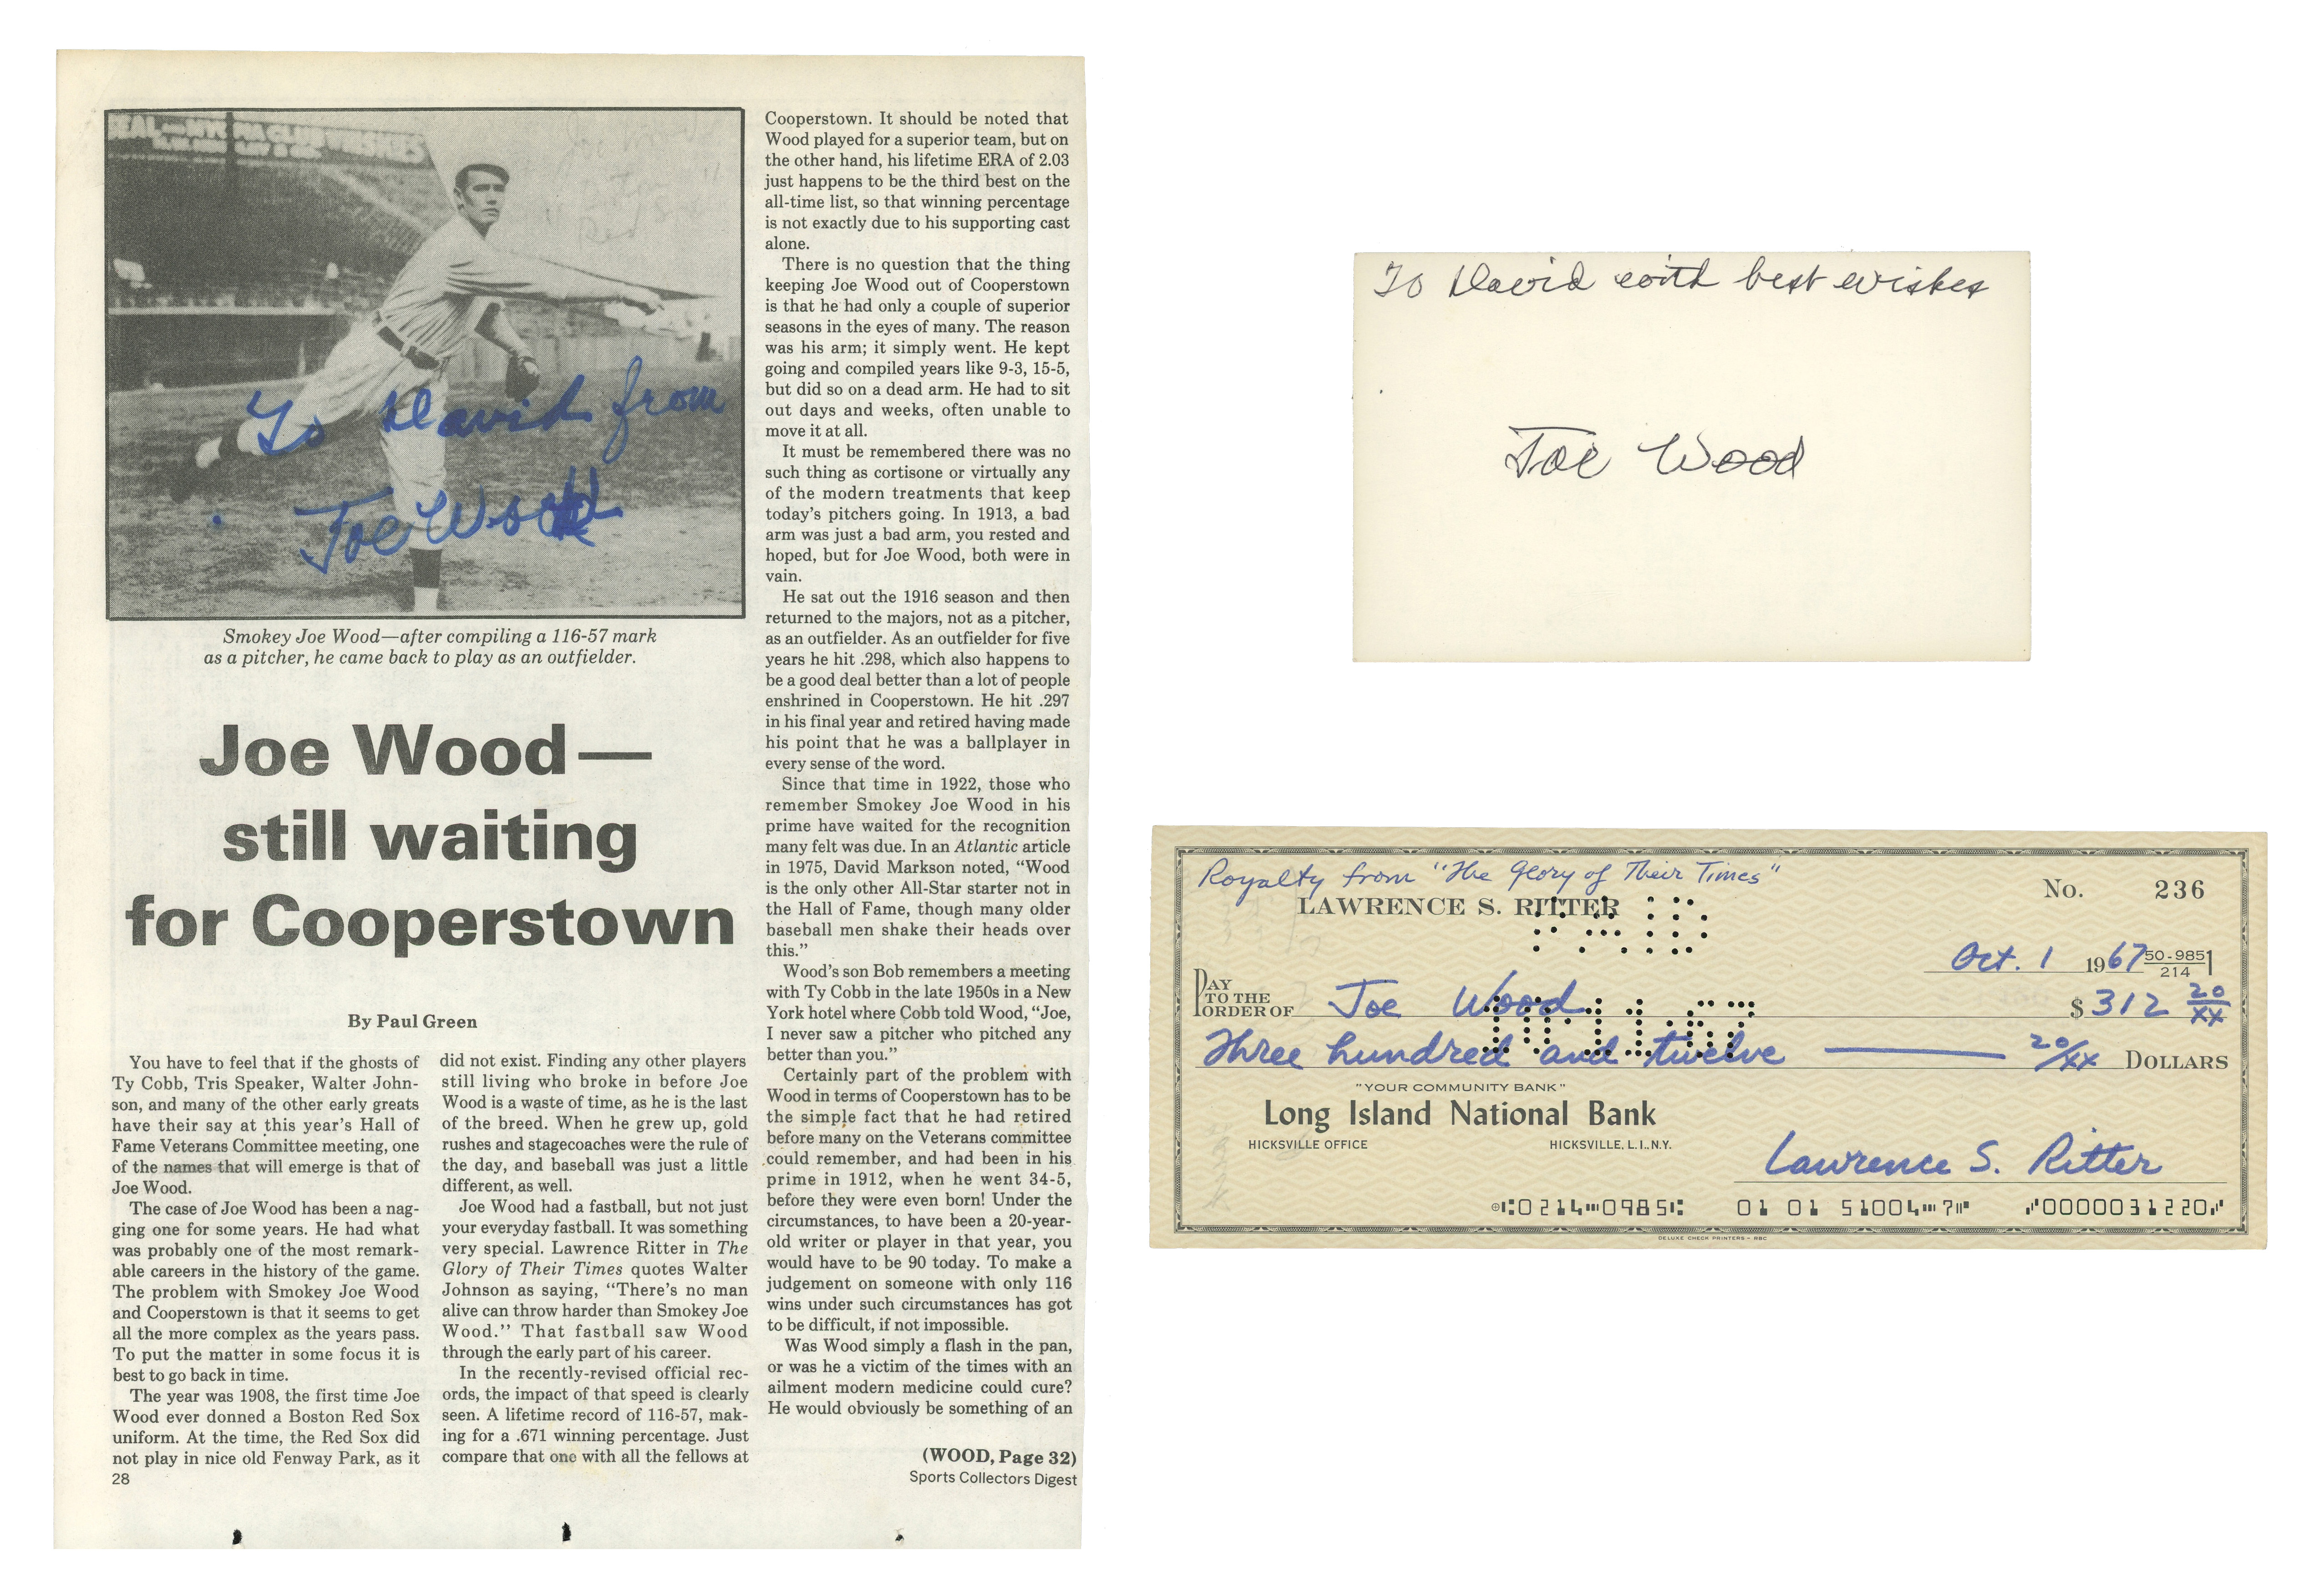 To David from
Joe Wood
Smokey Joe Wood—after compiling a 116-57 mark
as a pitcher, he came back to play as an outfielder.
Joe Wood—
still waiting
for Cooperstown
By Paul Green
You have to feel that if the ghosts of
Ty Cobb, Tris Speaker, Walter John-
son, and many of the other early greats
have their say at this year's Hall of
Fame Veterans Committee meeting, one
of the names that will emerge is that of
Joe Wood.
The case of Joe Wood has been a nag-
ging one for some years. He had what
was probably one of the most remark-
able careers in the history of the game.
The problem with Smokey Joe Wood
and Cooperstown is that it seems to get
all the more complex as the years pass.
To put the matter in some focus it is
best to go back in time.
The year was 1908, the first time Joe
Wood ever donned a Boston Red Sox
uniform. At the time, the Red Sox did
not play in nice old Fenway Park, as it
28
did not exist. Finding any other players
still living who broke in before Joe
Wood is a waste of time, as he is the last
of the breed. When he grew up, gold
rushes and stagecoaches were the rule of
the day, and baseball was just a little
different, as well.
Joe Wood had a fastball, but not just
your everyday fastball. It was something
very special. Lawrence Ritter in The
Glory of Their Times quotes Walter
Johnson as saying, "There's no man
alive can throw harder than Smokey Joe
Wood." That fastball saw Wood
through the early part of his career.
In the recently-revised official rec-
ords, the impact of that speed is clearly
seen. A lifetime record of 116-57, mak-
ing for a .671 winning percentage. Just
compare that one with all the fellows at
Cooperstown. It should be noted that
Wood played for a superior team, but on
the other hand, his lifetime ERA of 2.03
just happens to be the third best on the
all-time list, so that winning percentage
is not exactly due to his supporting cast
alone.
There is no question that the thing
keeping Joe Wood out of Cooperstown
is that he had only a couple of superior
seasons in the eyes of many. The reason
was his arm; it simply went. He kept
going and compiled years like 9-3, 15-5,
but did so on a dead arm. He had to sit
out days and weeks, often unable to
move it at all.
It must be remembered there was no
such thing as cortisone or virtually any
of the modern treatments that keep
today's pitchers going. In 1913, a bad
arm was just a bad arm, you rested and
hoped, but for Joe Wood, both were in
vain.
He sat out the 1916 season and then
returned to the majors, not as a pitcher,
as an outfielder. As an outfielder for five
years he hit .298, which also happens to
be a good deal better than a lot of people
enshrined in Cooperstown. He hit .297
in his final year and retired having made
his point that he was a ballplayer in
every sense of the word.
Since that time in 1922, those who
remember Smokey Joe Wood in his
prime have waited for the recognition
many felt was due. In an Atlantic article
in 1975, David Markson noted, "Wood
is the only other All-Star starter not in
the Hall of Fame, though many older
baseball men shake their heads over
this."
Wood's son Bob remembers a meeting
with Ty Cobb in the late 1950s in a New
York hotel where Cobb told Wood, "Joe,
I never saw a pitcher who pitched any
better than you."
Certainly part of the problem with
Wood in terms of Cooperstown has to be
the simple fact that he had retired
before many on the Veterans committee
could remember, and had been in his
prime in 1912, when he went 34-5,
before they were even born! Under the
circumstances, to have been a 20-year-
old writer or player in that year, you
would have to be 90 today. To make a
judgement on someone with only 116
wins under such circumstances has got
to be difficult, if not impossible.
Was Wood simply a flash in the pan,
or was he a victim of the times with an
ailment modern medicine could cure?
He would obviously be something of an
(WOOD, Page 32)
Sports Collectors Digest
To David with best wishes
Joe Wood
Royalty from "The Glory of Their Times"
LAWRENCE S. RITTER
No. 236
PAID
Oct. 1 1967 50-985
214
PAY
TO THE
ORDER OF Joe Wood $ 312 20/xx
Three hundred and twelve — 20/xx DOLLARS
"YOUR COMMUNITY BANK"
Long Island National Bank
HICKSVILLE OFFICE HICKSVILLE, L.I., N.Y.
Lawrence S. Ritter
0214 0985 01 01 51004 7 0000031220
DELUXE CHECK PRINTERS - RBC